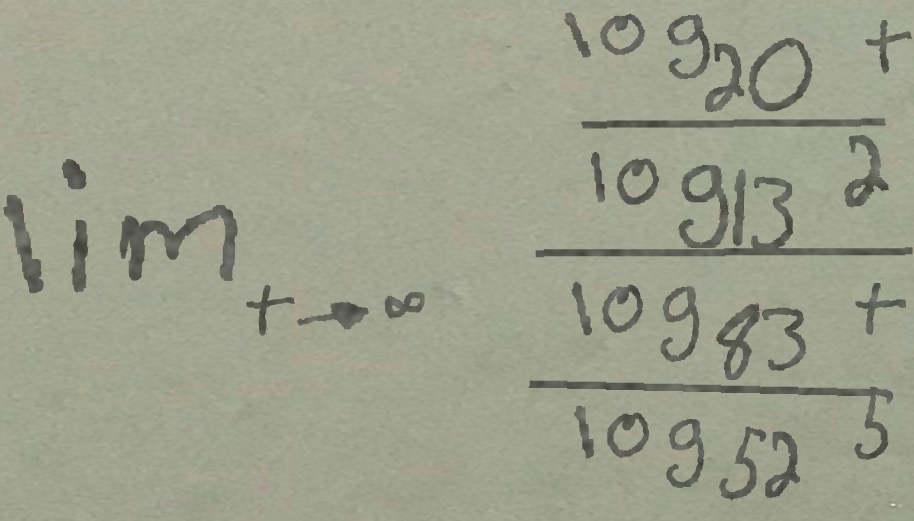 \lim_{t \to \infty} \frac{\frac{\log_{20} t}{\log_{13} 2}}{\frac{\log_{83} t}{\log_{52} 5}}